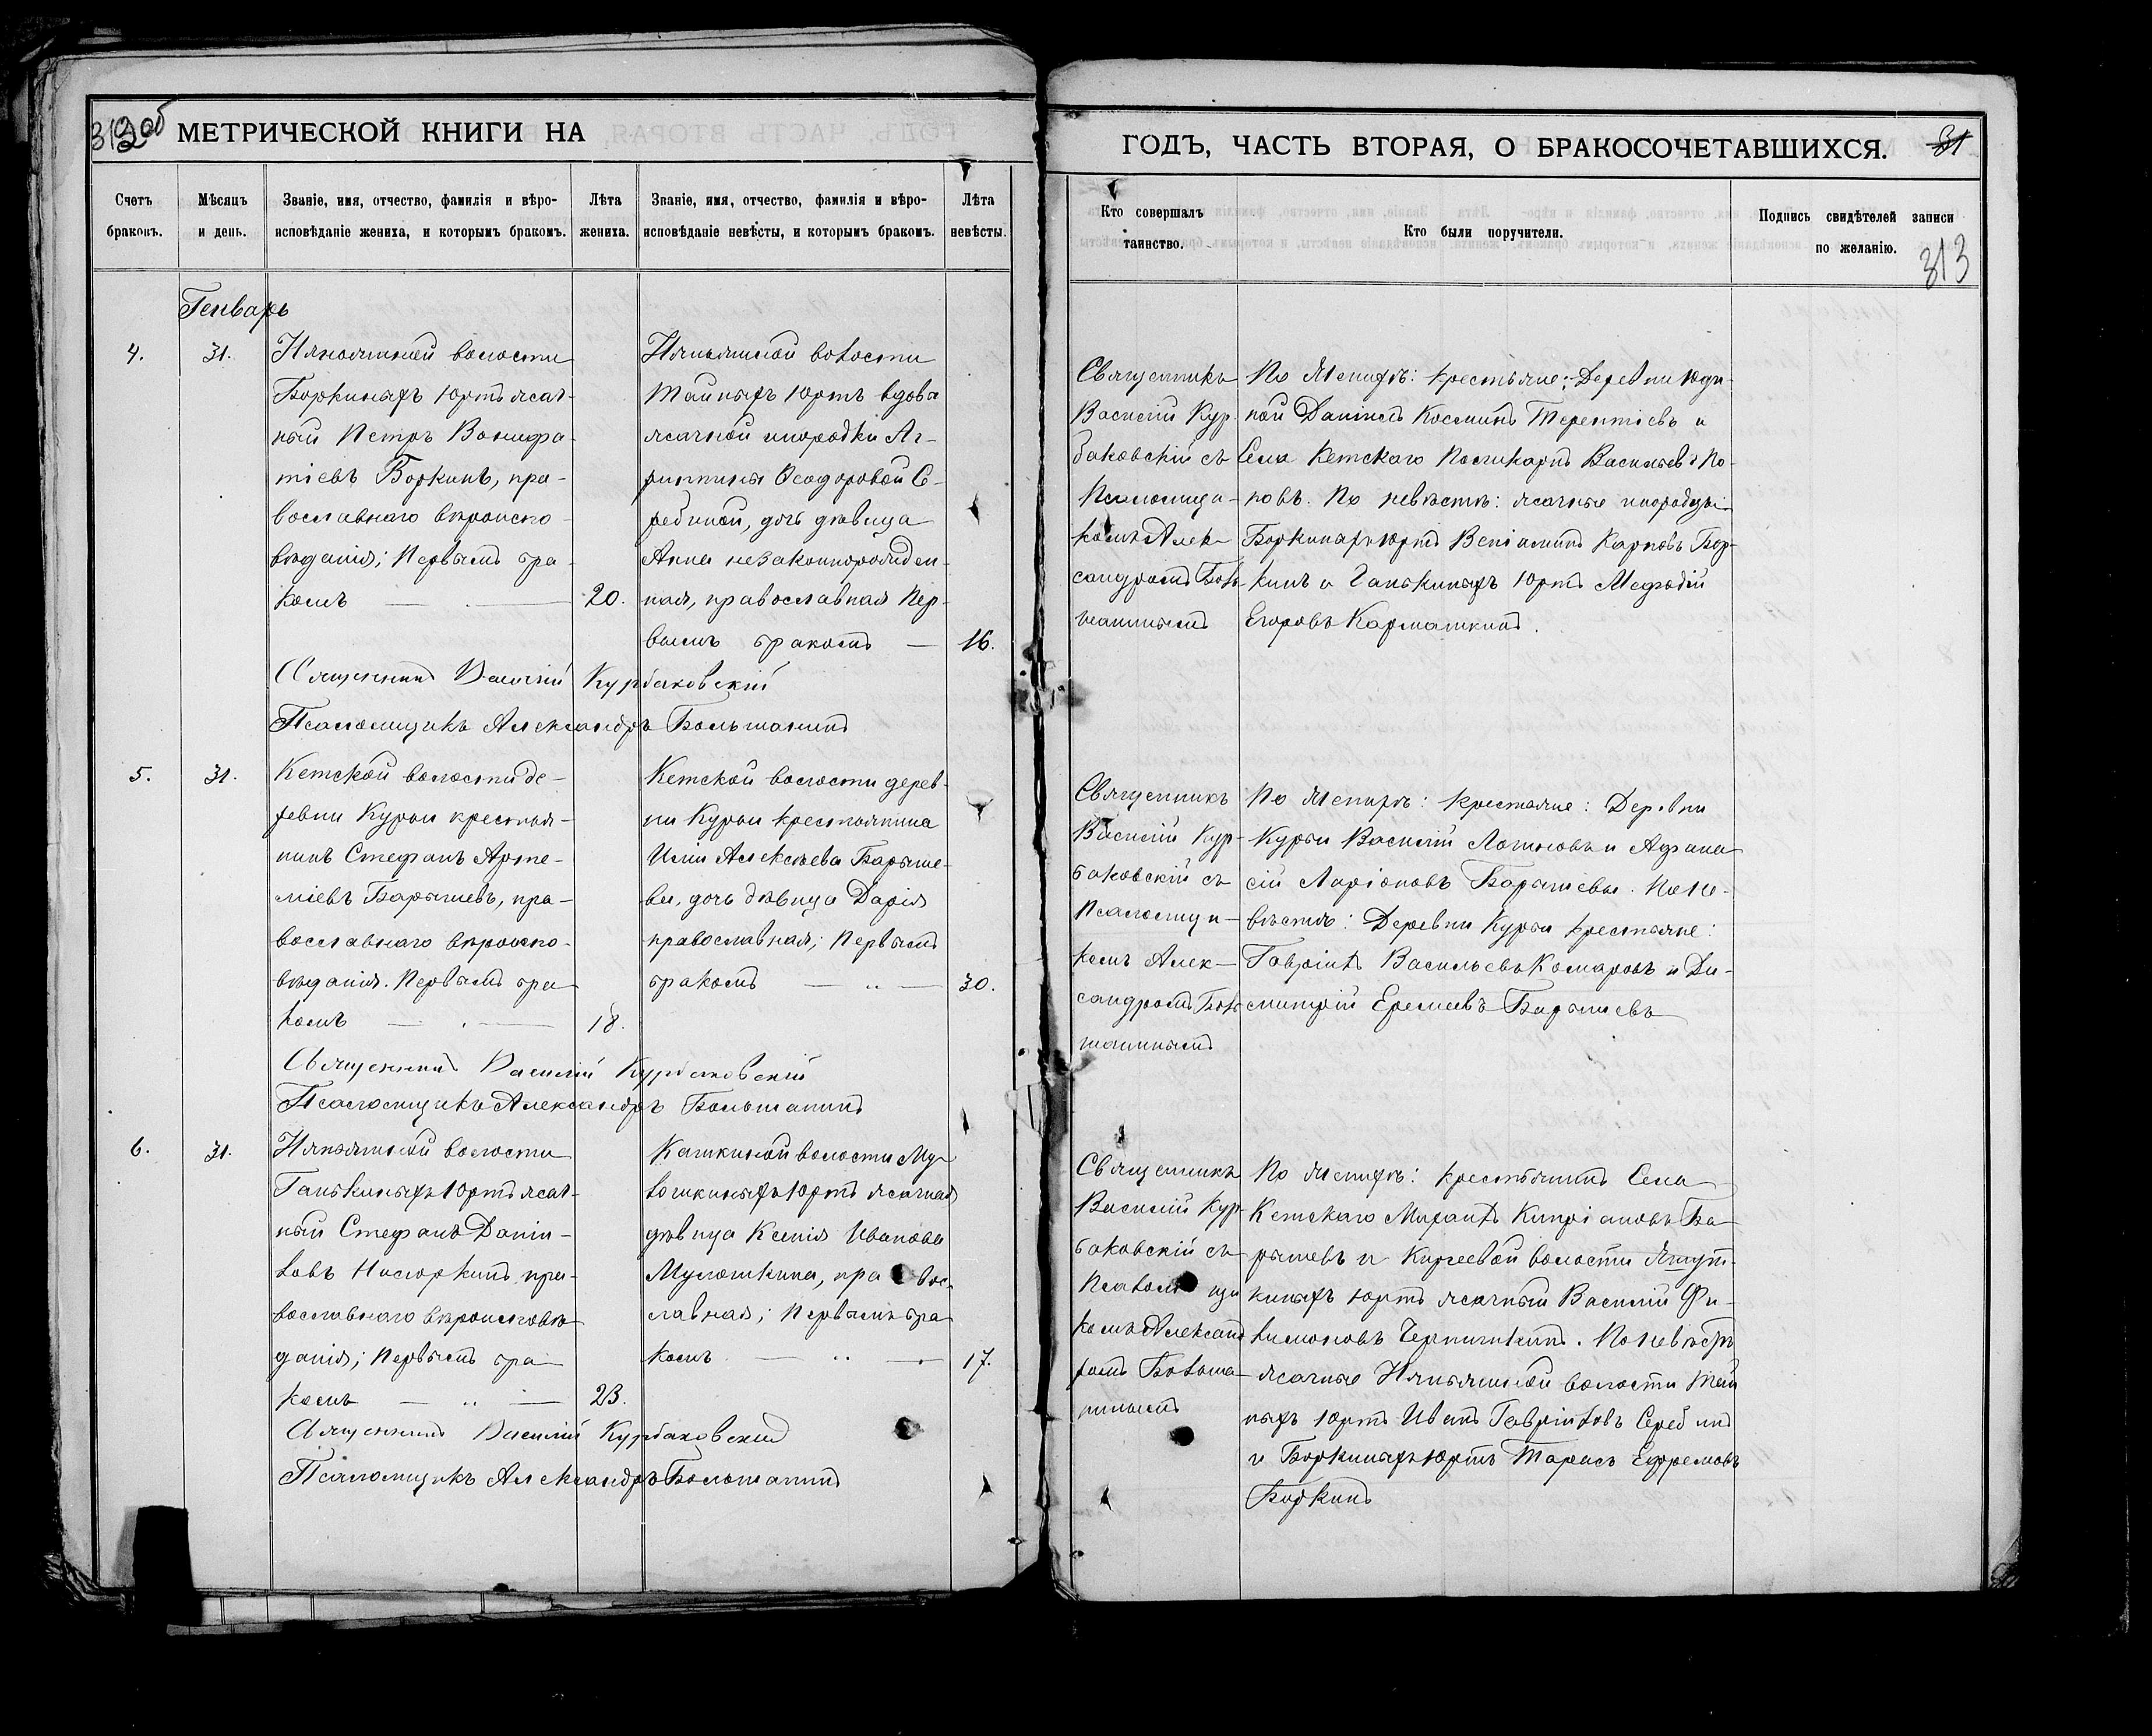 312 об
МЕТРИЧЕСКОЙ КНИГИ НА
Счетъ браковъ.
Мѣсяцъ и день.
Званіе, имя, отчество, фамилія и вѣроисповѣданіе жениха, и которымъ бракомъ.
Лѣта жениха.
Званіе, имя, отчество, фамилія и вѣроисповѣданіе невѣсты, и которымъ бракомъ.
Лѣта невѣсты.
Генварь
4.
31.
Нянямской волости
Боркиныхъ Юртъ ясач-
ный Петръ Вонифа-
тіевъ Боркинъ, пра-
вославнаго вѣроиспо-
вѣданія; Первымъ бра-
комъ
20.
Нянямской волости
Тайныхъ Юртъ вдовы
ясачной инородки Аг-
риппины Ѳеодоровой Се-
ребиной, дочь дѣвица
Анна незаконнорожден-
ная, православная Пер-
вымъ бракомъ
16.
Священникъ Василій Курбаковскій
Псаломщикъ Александръ Большанинъ
5.
31.
Кетской волости де-
ревни Курьи крестья-
нинъ Стефанъ Арте-
міевъ Барышевъ, пра-
вославнаго вѣроиспо-
вѣданія. Первымъ бра-
комъ
18.
Кетской волости дерев-
ни Курьи крестьянина
Иліи Алексѣева Барыше-
ва, дочь дѣвица Дарія
православная; Первымъ
бракомъ
30.
Священникъ Василій Курбаковскій
Псаломщикъ Александръ Большанинъ
6.
31.
Нянямской волости
Ганькиныхъ Юртъ ясач-
ный Стефанъ Даніи-
ловъ пра-
вославнаго вѣроисповѣ-
данія; Первымъ бра-
комъ
23.
Кашкиной волости Му-
лошкиныхъ Юртъ ясачная
дѣвица Ксенія Иванова
Мулошкина, правос-
лавная; Первымъ бра-
комъ
17.
Священникъ Василій Курбаковскій
Псаломщикъ Александръ Большанинъ
ГОДЪ, ЧАСТЬ ВТОРАЯ, О БРАКОСОЧЕТАВШИХСЯ.
31
Кто совершалъ таинство.
Кто были поручители.
Подпись свидѣтелей записи по желанію.
313
Священникъ
Василій Кур-
баковскій съ
Псаломщи-
комъ Алек-
сандромъ Боль-
шанинымъ
По женихѣ: крестьяне: Деревни Юди-
ной Даніилъ Косминъ Терентіевъ и
Села Кетскаго Поликарпъ Васильевъ По-
повъ. По невѣстѣ: ясачные инородцы
Боркиныхъ юртъ Веніаминъ Карповъ Бор-
кинъ и Ганькиныхъ Юртъ Меѳодій
Егоровъ Кармашкинъ.
Священникъ
Василій Кур-
баковскій съ
Псаломщи-
комъ Алек-
сандромъ Боль-
шанинымъ
По женихѣ: крестьяне: Деревни
Курьи Василій Логиновъ и Афана-
сій Ларіоновъ Барышевы. По не-
вѣстѣ: Деревни Курьи крестьяне:
Гавріилъ Васильевъ Комаровъ и Ди-
митрій Еремеевъ Барышевъ
Священникъ
Василій Кур-
баковскій съ
Псаломщи
комъ Александ
ромъ Больша-
нинымъ
По женихѣ: крестьянинъ Села
Кетскаго Киприановъ Ба-
рышевъ и Киргеевой волости
киныхъ юртъ ясачный Василій Фи-
лимоновъ. По невѣстѣ
ясачные Нянямской волости Тай
ныхъ Юртъ Иванъ Гавріиловъ Серебинъ
и Боркиныхъ Юртъ Тарасъ Ефремовъ
Боркинъ